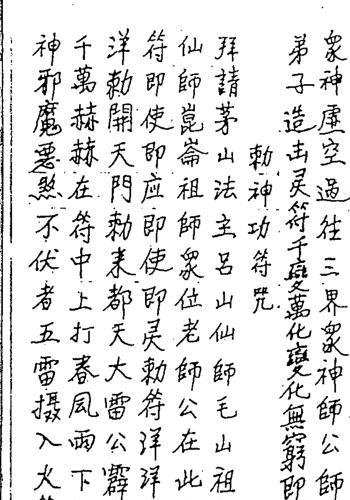 眾神虛空過往三界眾神師公師
弟子造击灵符千變萬化變化無窮即
勅神功符咒
拜請茅山法主呂山仙師毛山祖
仙師崑崙祖師眾位老師公在此
符即使即应即使即灵勅符洋洋
洋勅開天門勅来都天大雷公霹
千萬赫赫在符中上打春風雨下
神邪魔惡煞不伏者五雷摄入火